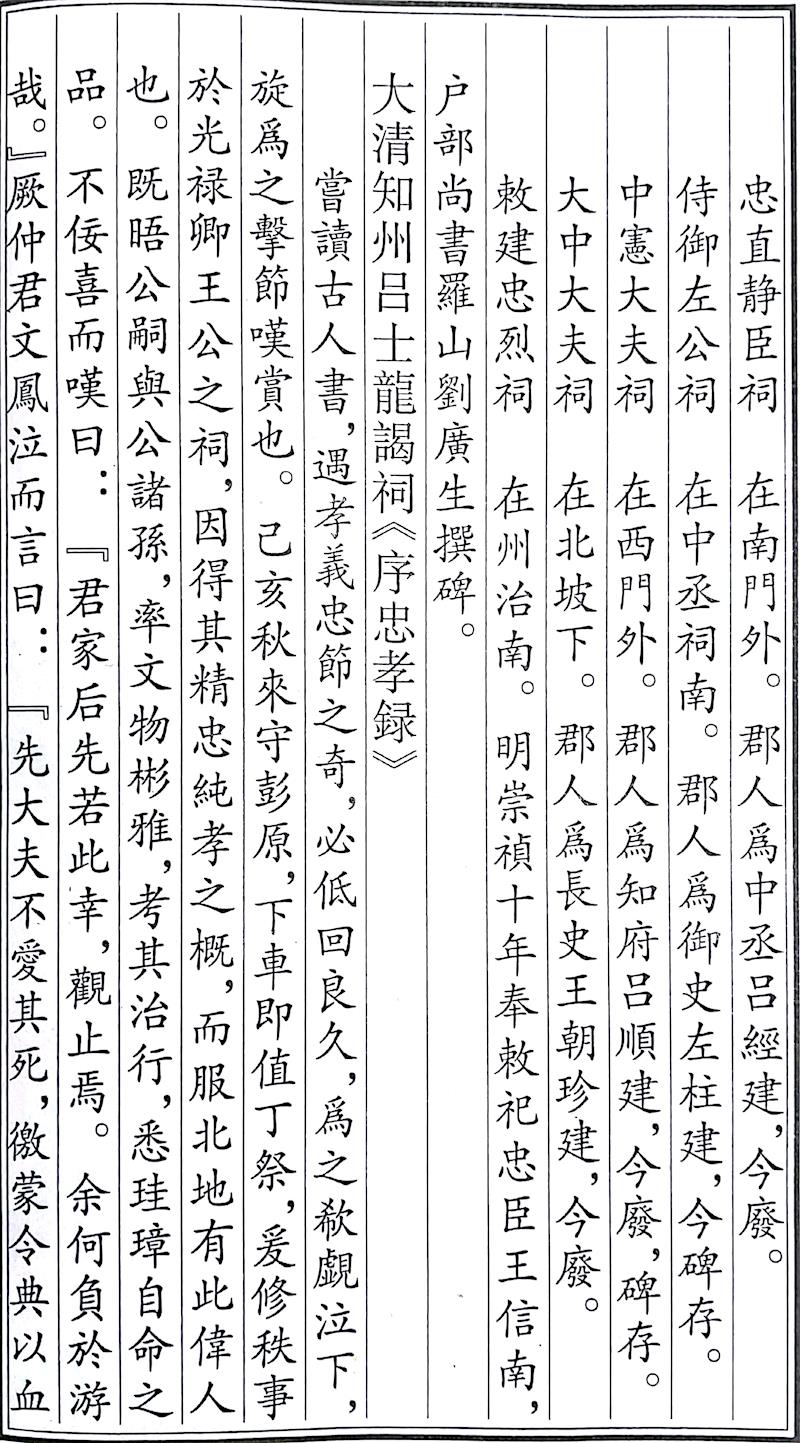 忠直静臣祠　在南門外。郡人爲中丞吕經建，今廢。
侍御左公祠　在中丞祠南。郡人爲御史左柱建，今碑存。
中憲大夫祠　在西門外。郡人爲知府吕順建，今廢，碑存。
大中大夫祠　在北坡下。郡人爲長史王朝珍建，今廢。
敕建忠烈祠　在州治南。明崇禎十年奉敕祀忠臣王信南，
户部尚書羅山劉廣生撰碑。
大清知州吕士龍謁祠《序忠孝録》
嘗讀古人書，遇孝義忠節之奇，必低回良久，爲之欷覷泣下，
旋爲之擊節嘆賞也。己亥秋來守彭原，下車即值丁祭，爰修秩事
於光禄卿王公之祠，因得其精忠純孝之概，而服北地有此偉人
也。既晤公嗣與公諸孫，率文物彬雅，考其治行，悉珪璋自命之
品。不佞喜而嘆曰：『君家后先若此幸，觀止焉。余何負於游
哉。』厥仲君文鳳泣而言曰：『先大夫不愛其死，徼蒙令典以血